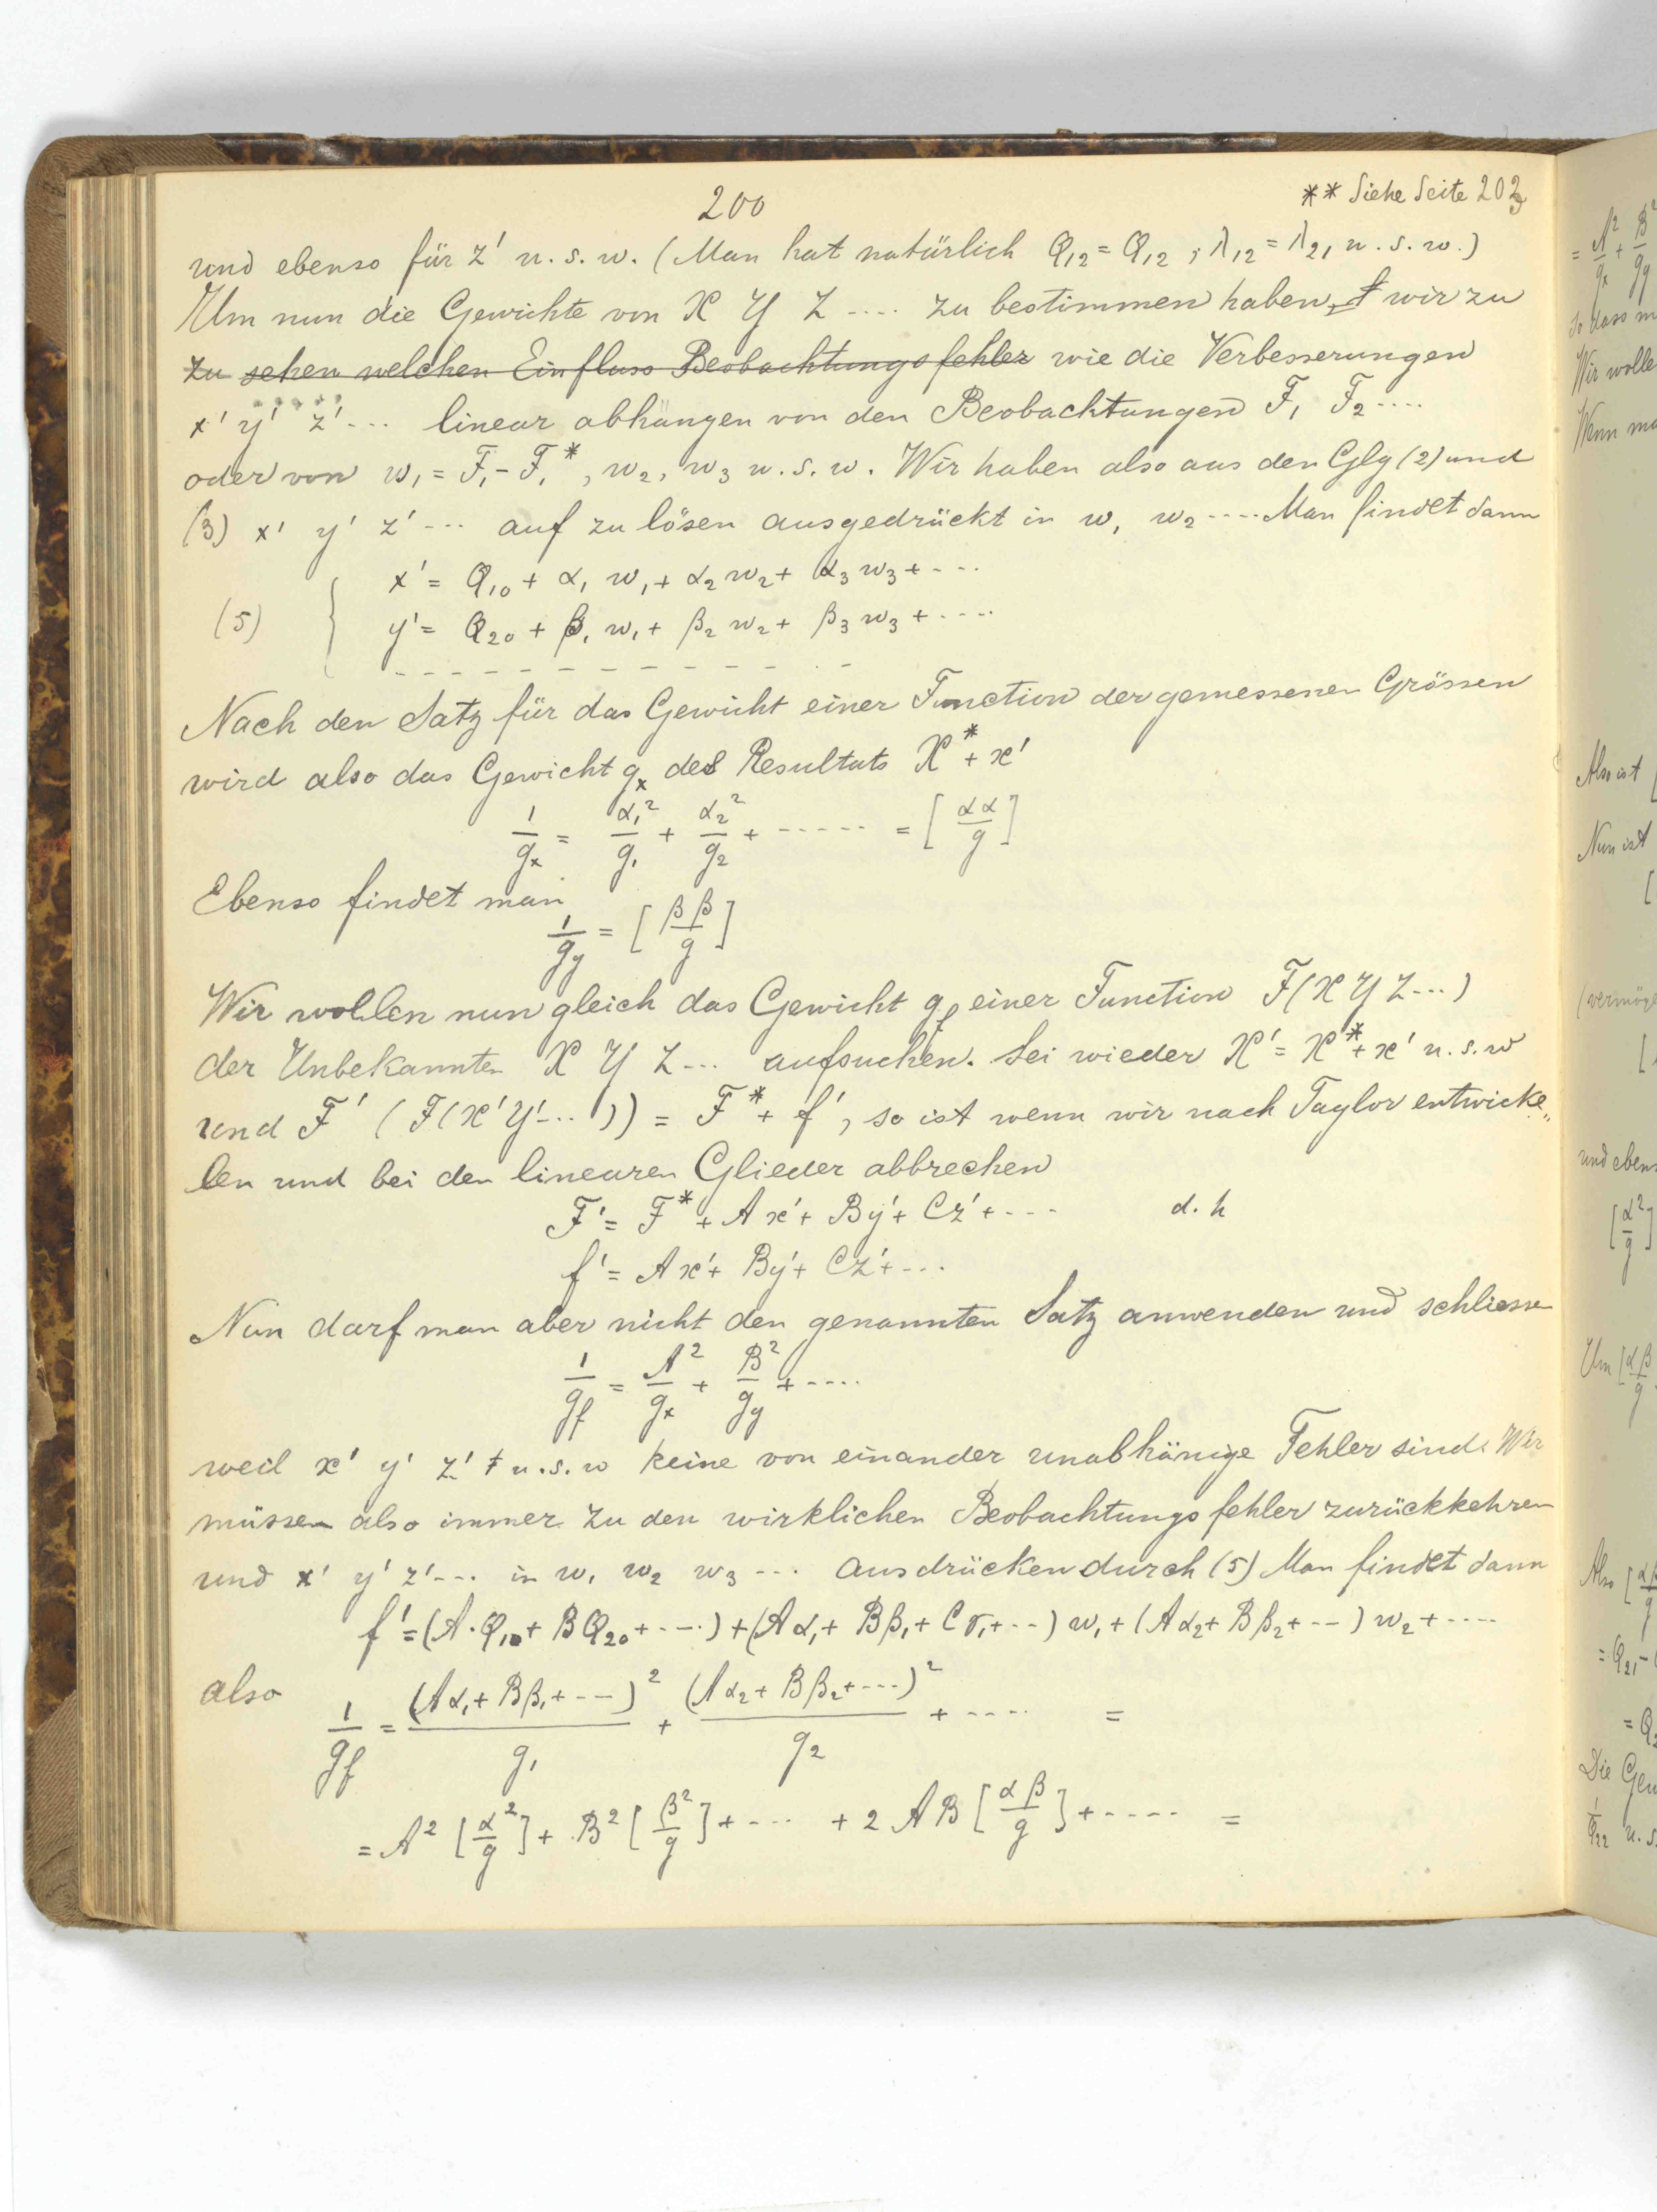 200
** Siehe Seite 203
und ebenso für z' u.s.w. (Man hat natürlich Q₁₂ = Q₁₂ ; λ₁₂ = λ₂₁ u.s.w.)
Um nun die Gewichte von X Y Z .... zu bestimmen haben wir zu
zu sehen welchen Einfluss Beobachtungsfehler wie die Verbesserungen
x' y' z' ... linear abhängen von den Beobachtungen F₁ F₂ ....
oder von w₁ = F₁ - F₁*, w₂, w₃ u.s.w. Wir haben also aus den Glg (2) und
(3) x' y' z' ... auf zu lösen ausgedrückt in w₁ w₂ .... Man findet dann
x' = Q₁₀ + α₁ w₁ + α₂ w₂ + α₃ w₃ + ....
(5) { y' = Q₂₀ + β₁ w₁ + β₂ w₂ + β₃ w₃ + ....
- - - - - - - - - - - -
Nach den Satz für das Gewicht einer Function der gemessenen Grössen
wird also das Gewicht gₓ des Resultats X* + x'
1/gₓ = α₁²/g₁ + α₂²/g₂ + ..... = [αα/g]
Ebenso findet man
1/g_y = [ββ/g]
Wir wollen nun gleich das Gewicht g_f einer Function F(X Y Z ...)
der Unbekannten X Y Z ... aufsuchen. Sei wieder X' = X* + x' u.s.w
und F' (F(X'Y'...)) = F* + f', so ist wenn wir nach Taylor entwicke„
len und bei den linearen Glieder abbrechen
F' = F* + Ax' + By' + Cz' + ... d.h
f' = Ax' + By' + Cz' + ...
Nun darf man aber nicht den genannten Satz anwenden und schliessen
1/g_f = A²/gₓ + B²/g_y + ....
weil x' y' z' u.s.w keine von einander unabhänige Fehler sind. Wir
müssen also immer zu den wirklichen Beobachtungsfehler zurückkehren
und x' y' z' ... in w₁ w₂ w₃ ... ausdrücken durch (5) Man findet dann
f' = (A·Q₁₀ + BQ₂₀ + ...) + (Aα₁ + Bβ₁ + Cγ₁ + ..) w₁ + (Aα₂ + Bβ₂ + ..) w₂ + ....
also 1/g_f = (Aα₁ + Bβ₁ + ...)²/g₁ + (Aα₂ + Bβ₂ + ...)²/g₂ + .... =
= A² [α²/g] + B² [β²/g] + ... + 2AB [αβ/g] + .... =
= A²/gₓ + B²/g_y
so dass
Wir wolle
Wenn
Also ist
Nun ist
(vermöge
und eben
[α²/g]
Um [αβ/g
Also
= Q₂₁ -
Die
u.s.